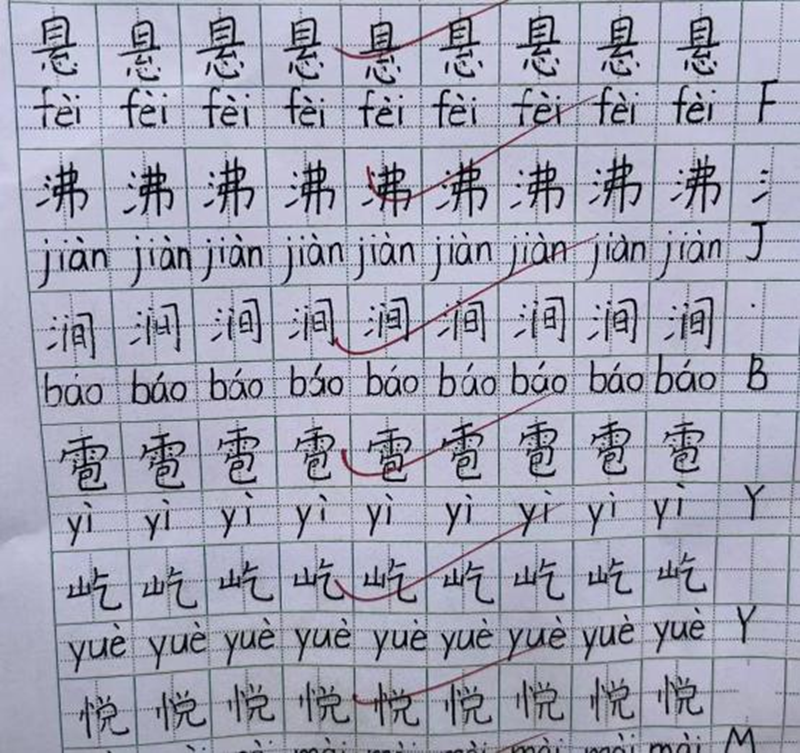 悬 悬 悬 悬 悬 悬 悬 悬 悬
fèi fèi fèi fèi fèi fèi fèi fèi fèi F
沸 沸 沸 沸 沸 沸 沸 沸 沸 氵
jiàn jiàn jiàn jiàn jiàn jiàn jiàn jiàn jiàn J
涧 涧 涧 涧 涧 涧 涧 涧 涧
báo báo báo báo báo báo báo báo báo B
雹 雹 雹 雹 雹 雹 雹 雹 雹
yì yì yì yì yì yì yì yì yì Y
屹 屹 屹 屹 屹 屹 屹 屹 屹
yuè yuè yuè yuè yuè yuè yuè yuè yuè Y
悦 悦 悦 悦 悦 悦 悦 悦 悦
mài mài mài mài mài mài M